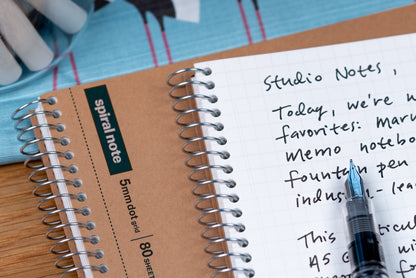 spiral note
5mm dot grid | 80 SHEETS
Studio Notes,
Today, we're
favorites: Maru
Memo notebo
fountain pen
indus -le
This